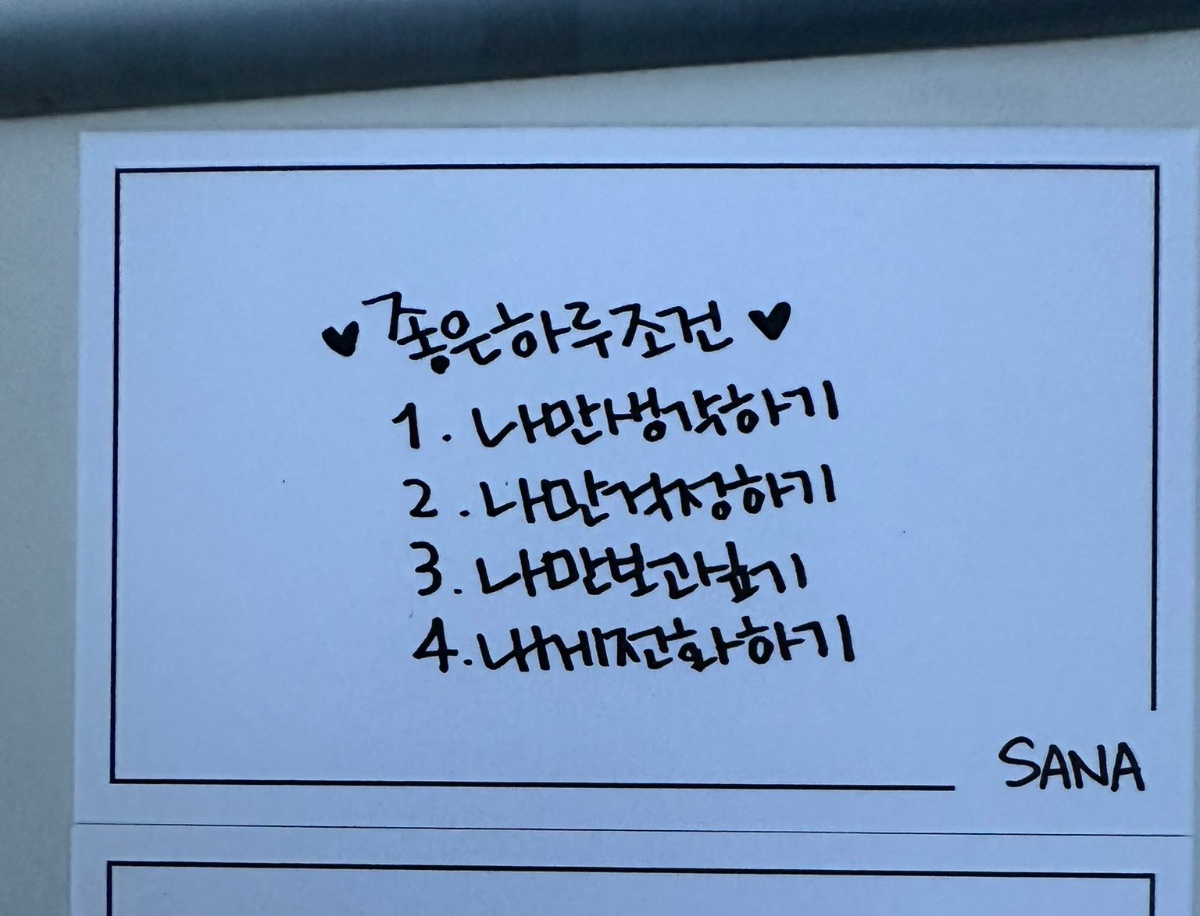 ♥ 좋은하루조건 ♥
1. 나만생각하기
2. 나만걱정하기
3. 나만보고싶기
4. 내게전화하기
SANA